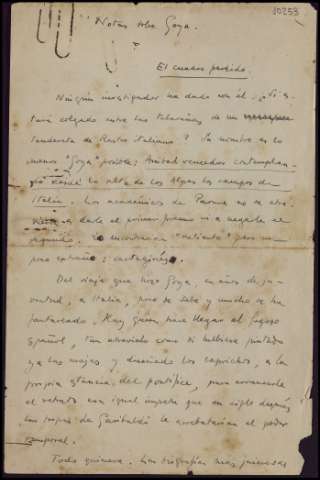 10253
"Notas sobre Goya.
El cuadro perdido.
Ningún investigador ha dado con él. ¿Es-
tará colgado entre las telarañas de un
tenducho de Rastro italiano? Su nombre es lo
menos "Goya" posible: Aníbal vencedor contemplan-
do desde lo alto de los Alpes los campos de
Italia. Los académicos de Parma no se atre-
a darle el primer premio ni a negarle el
segundo. Lo encontraron "valiente" pero un
poco extraño; cartaginés.
Del viaje que hizo Goya, en años de ju-
ventud, a Italia, poco se sabe y mucho se ha
fantaseado. Hay quien hace llegar al fogoso
español, tan atraviado como si hubiese pintado
ya las majas y diseñado los caprichos, a la
propia estancia del pontífice, para arrancarle
el retrato con igual ímpetu que un siglo después
las tropas de Garibaldi le arrebatarían el poder
temporal.
Todo quimera. Los biógrafos más